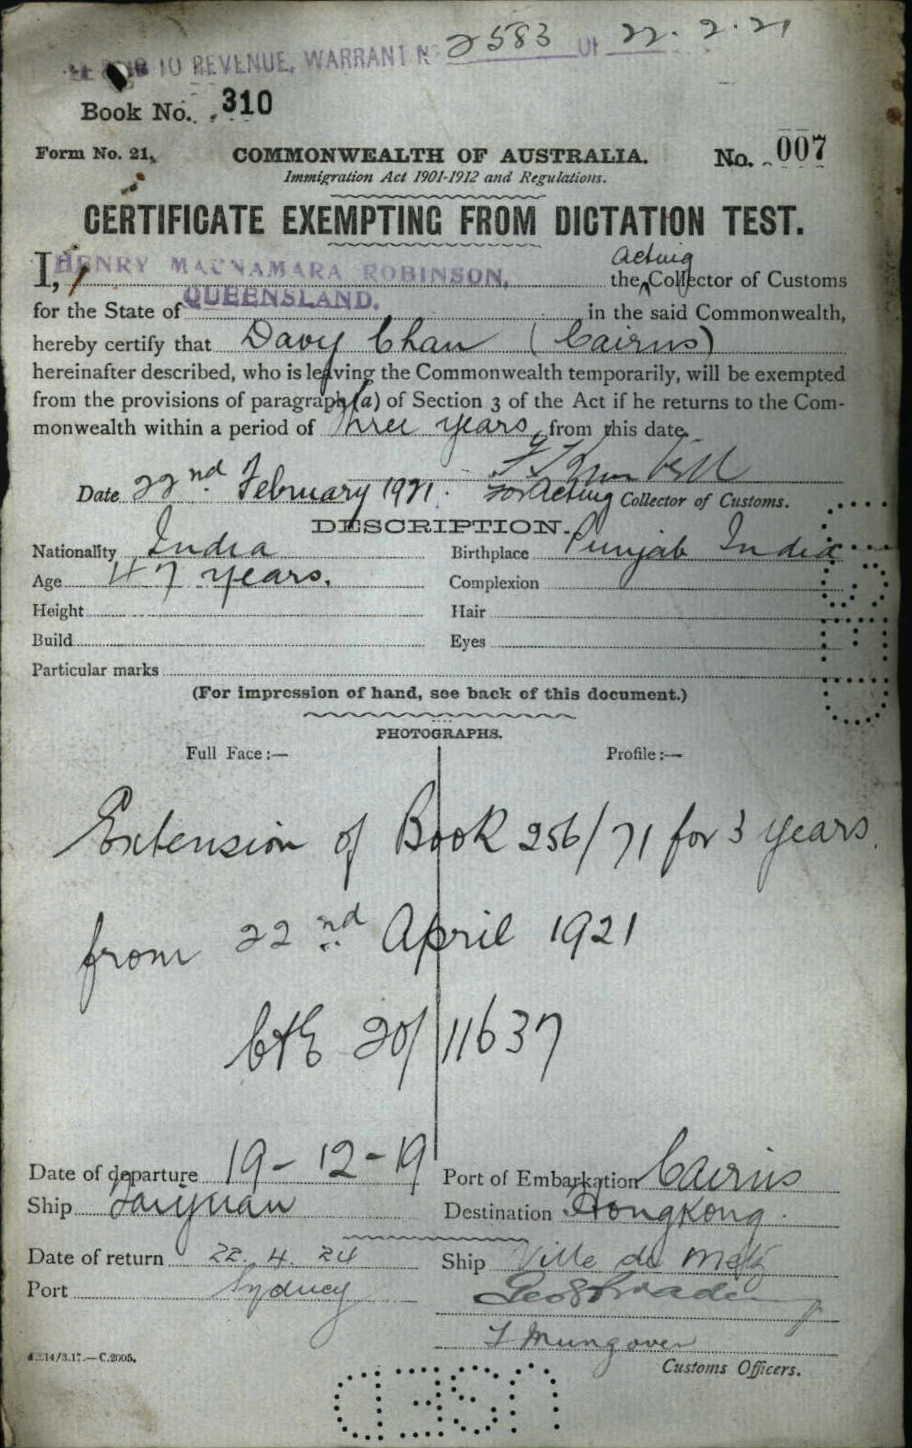 TO REVENUE, WARRANT No 2583 Of 22.2.21
Book No. 310
Form No. 21.
COMMONWEALTH OF AUSTRALIA.
No. 007
Immigration Act 1901-1912 and Regulations.
CERTIFICATE EXEMPTING FROM DICTATION TEST.
I, HENRY MACNAMARA ROBINSON, the Acting Collector of Customs
for the State of QUEENSLAND. in the said Commonwealth,
hereby certify that Davy Chan (Cairns)
hereinafter described, who is leaving the Commonwealth temporarily, will be exempted
from the provisions of paragraph (a) of Section 3 of the Act if he returns to the Com-
monwealth within a period of three years from this date.
Date 22nd February 1921. For Acting Collector of Customs.
DESCRIPTION.
Nationality India Birthplace Punjab India
Age 47 years. Complexion
Height Hair
Build Eyes
Particular marks
(For impression of hand, see back of this document.)
PHOTOGRAPHS.
Full Face:— Profile:—
Extension of Book 256/71 for 3 years
from 22nd April 1921
C&E 20/11637
Date of departure 19-12-19 Port of Embarkation Cairns
Ship Taiyuan Destination Hongkong.
Date of return 22.4.24 Ship Ville de Metz
Port Sydney
Customs Officers.